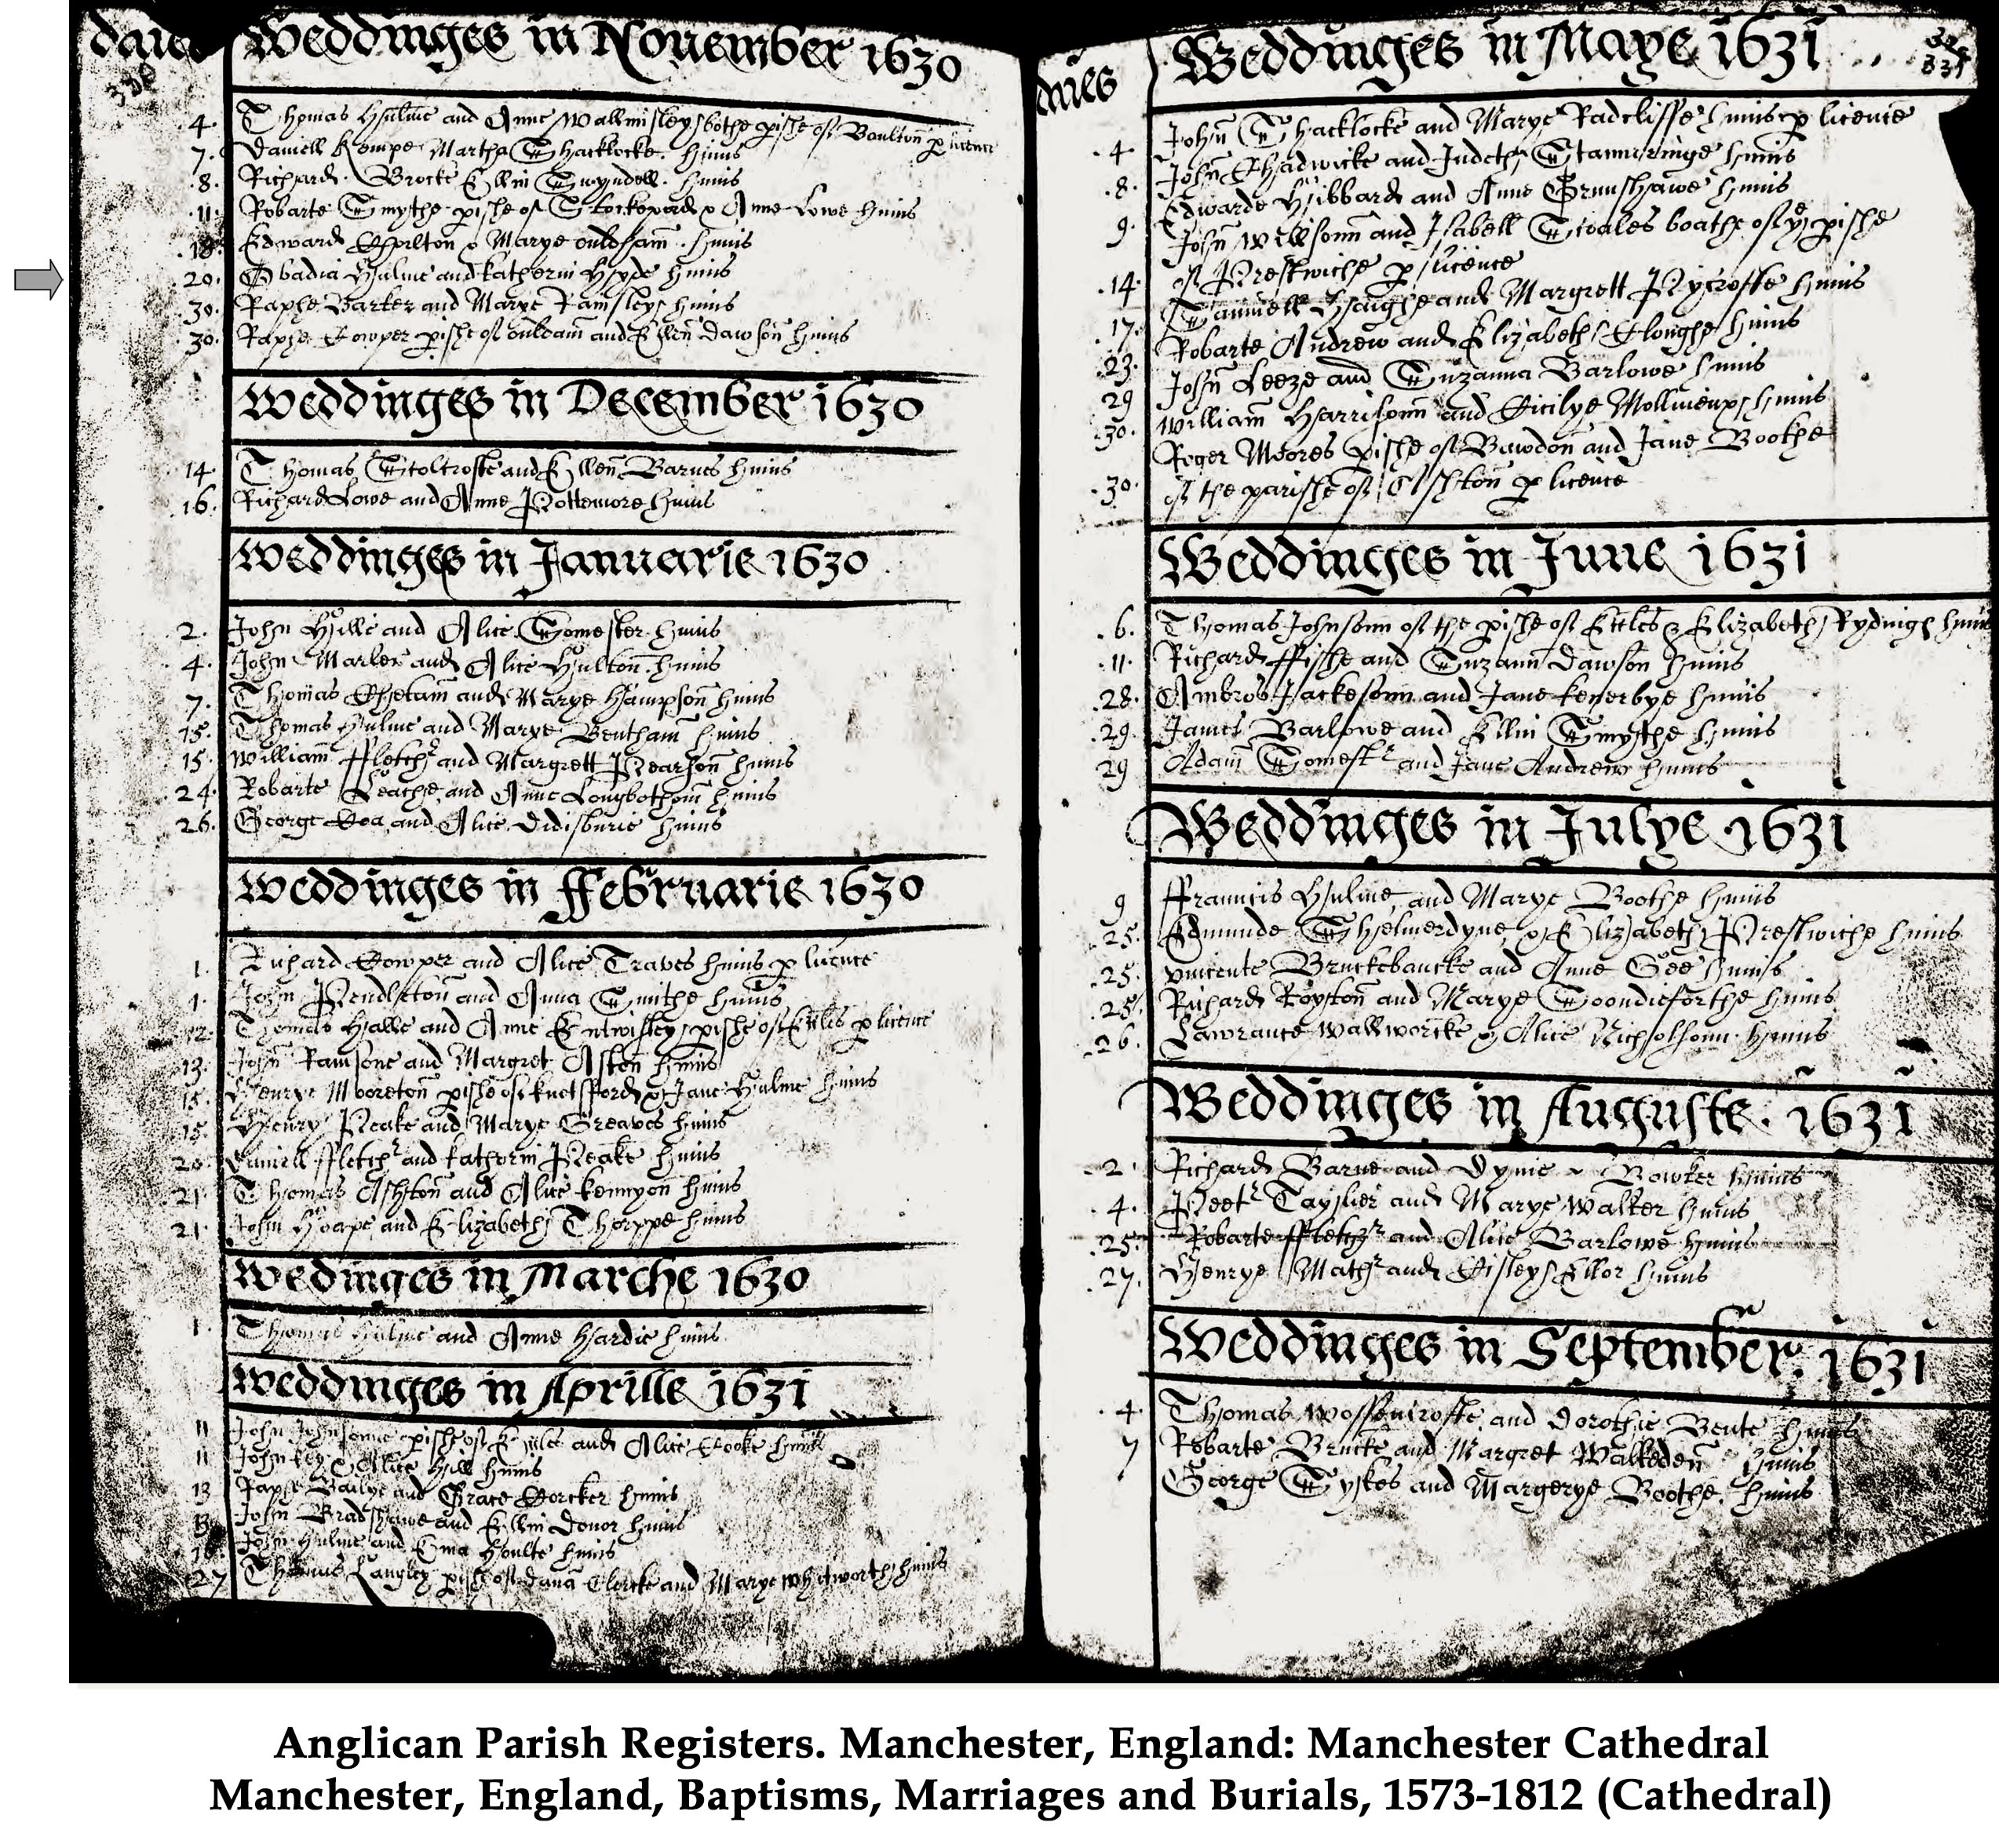 daies Weddinges in November 1630
4. Thomas Hulme and Anne Wallmisley bothe pishe of Boulton p licence
7. Daniell Kempe Martha Shacklocke. huius
8. Richard Brocke Ellin Swyndell. huius
11. Robarte Smythe pishe of Stockeport & Anne Lowe huius
18. Edward Chorlton & Marye ouldham. huius
20. Obadia Hulme and katherin Hyde huius
30. Raphe Barker and Marye Ramsley huius
30. Raphe Cowper pishe of ouldam and Ellen Dawson huius
Weddinges in December 1630
14. Thomas and Ellen Barnes huius
16. Richard Lowe and Anne huius
Weddinges in Januarie 1630
2. John Hille and Alice Somester huius
4. John Marler and Alice Hulton. huius
7. Thomas Chetam and Marye Hampson huius
15. Thomas Hulme and Marye Bentham huius
15. William ffletchr and Margrett Pearson huius
24. Robarte Leache and Anne Longbothom huius
26. George and Alice Didisburie huius
Weddinges in ffebruarie 1630
1. Richard Cowper and Alice Traves huius p licence
1. John Pendleton and Anna Smithe huius
12. Thomas Halle and Anne Entwisley pishe of Eccles p licence
13. John Ramsone and Margret Aston huius
15. Henrye Mooreton pishe of knotsford & Jane Hulme huius
15. Henry Peake and Marye Greaves huius
20. Daniell ffletchr and katherin Peake huius
21. Thomas Ashton and Alice kennyon huius
21. John Hoape and Elizabeth Thorppe huius
Wedinges in Marche 1630
1. Thomas Hulme and Anne Hardie huius
Weddinges in Aprille 1631
11 John Johnsonne pishe of Eccles and Alice Cooke huius
11 John key & Alice Hill huius
13 Raphe Bailye and Grace Corcker huius
13 John Bradshawe and Ellin Donor huius
John Hulme and Ema Houlte huius
27 Thomas Langley pishe of and Marye Whitworth huius
daies Weddinges in Maye 1631
4. John Shacklocke and Marye Radcliffe huius p licence
8. John Chadwicke and Judeth Stanneringe huius
Edwarde Hibbard and Anne Grunshawe huius
9. John Willsonn and Isabell Scoales boathe of ye pishe
of Prestwiche p licence
14. Samuell Haughe and Margrett Rycrofte huius
17. Robarte Andrew and Elizabeth Cloughe huius
23. John Leeze and Suzanna Barlowe huius
29 William Harrisonn and Cicilye Mollineux huius
30. Roger Moores pishe of Bawdon and Jane Boothe
30. of the parishe of Ashton p licence
Weddinges in June 1631
6. Thomas Johnsonn of the pishe of Eccles & Elizabeth Rydinge huius
11. Richard ffishe and Suzann Dawson huius
28. Ambros Jackesonn and Jane kenerbye huius
29. James Barlowe and Ellin Smythe huius
29 Adam Somestr and Jane Andrew huius
Weddinges in Julye 1631
9 ffrauncis Hulme and Marye Boothe huius
25. Edmunde Shelmerdyne & Elizabeth Prestwiche huius
25. vincente Bruckebancke and Anne Gee huius
25. Richard Royston and Marye Soondieforthe huius
26. Lawrance Wallworcke & Alice Nicholsonn huius
Weddinges in Auguste. 1631
2. Richard Barne and Dynis ~ Bowker huius
4. Peetr Taylier and Marye Walker huius
25. Robarte ffletchr and Alice Barlowe huius
27. Henrye Mathr and Cisley Ellor huius
Weddinges in September. 1631
4. Thomas Wossencrofte and Dorothie Bente huius
7 Robarte Brucke and Margret Walkeden huius
George Sykes and Margerye Boothe. huius
Anglican Parish Registers. Manchester, England: Manchester Cathedral
Manchester, England, Baptisms, Marriages and Burials, 1573-1812 (Cathedral)